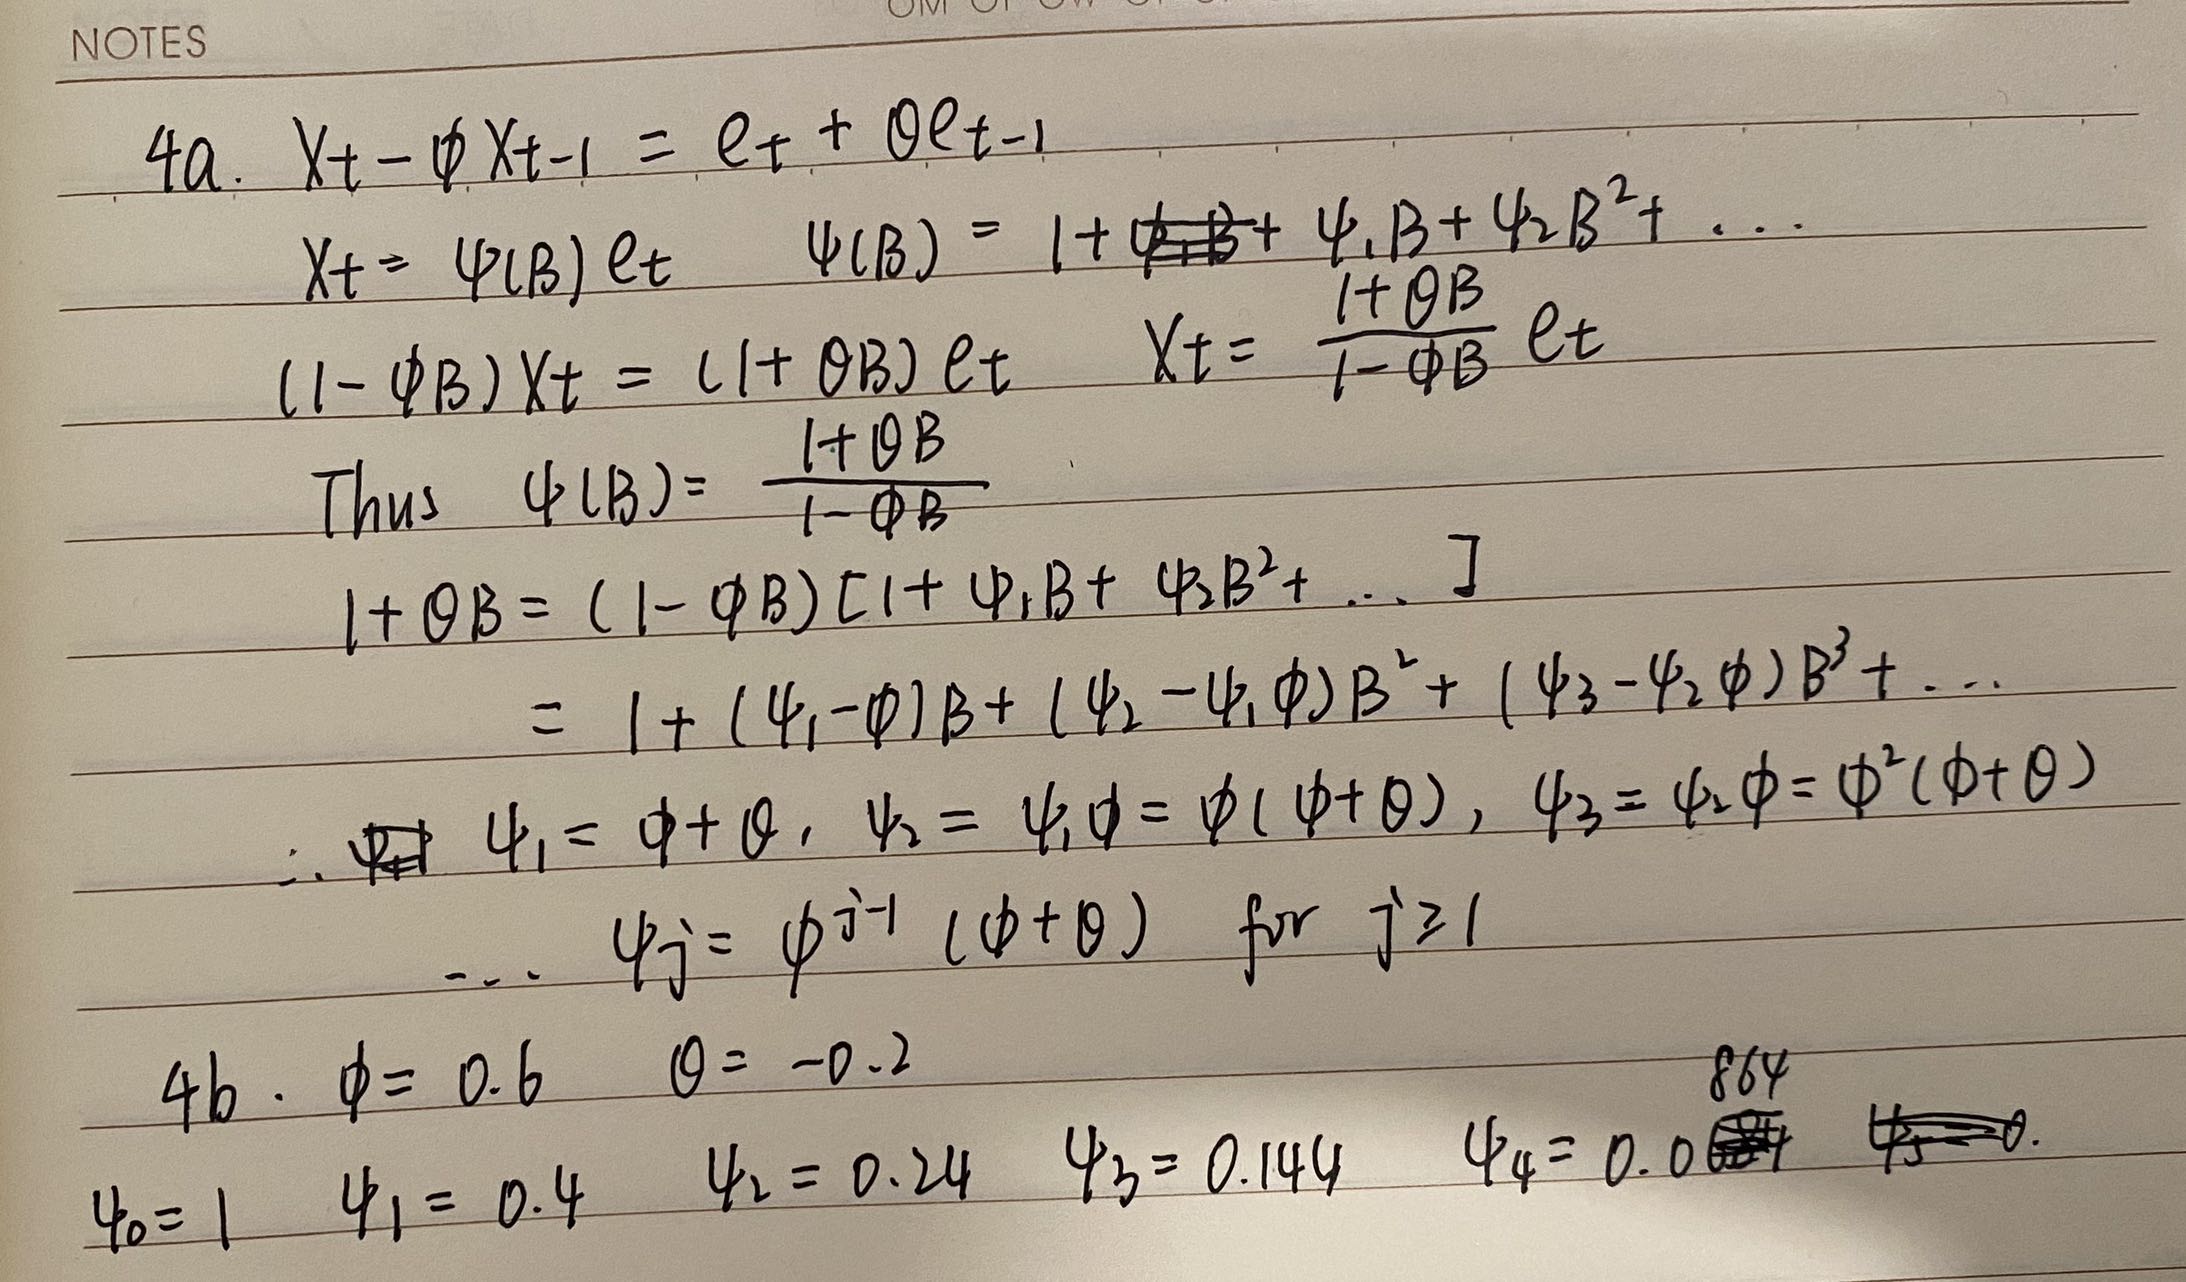 NOTES
4a. Xt - ϕXt-1 = et + θet-1
Xt = ψ(B)et ψ(B) = 1 + + ψ₁B + ψ₂B² + ...
(1 - ϕB)Xt = (1 + θB)et Xt = (1+θB)/(1-ϕB) et
Thus ψ(B) = (1+θB)/(1-ϕB)
1 + θB = (1 - ϕB)[1 + ψ₁B + ψ₂B² + ... ]
= 1 + (ψ₁ - ϕ)B + (ψ₂ - ψ₁ϕ)B² + (ψ₃ - ψ₂ϕ)B³ + ...
∴ ψ₁ = ϕ + θ, ψ₂ = ψ₁ϕ = ϕ(ϕ + θ), ψ₃ = ψ₂ϕ = ϕ²(ϕ + θ)
... ψj = ϕ^j-1 (ϕ + θ) for j ≥ 1
4b. ϕ = 0.6 θ = -0.2
ψ₀ = 1 ψ₁ = 0.4 ψ₂ = 0.24 ψ₃ = 0.144 ψ₄ = 0.0864